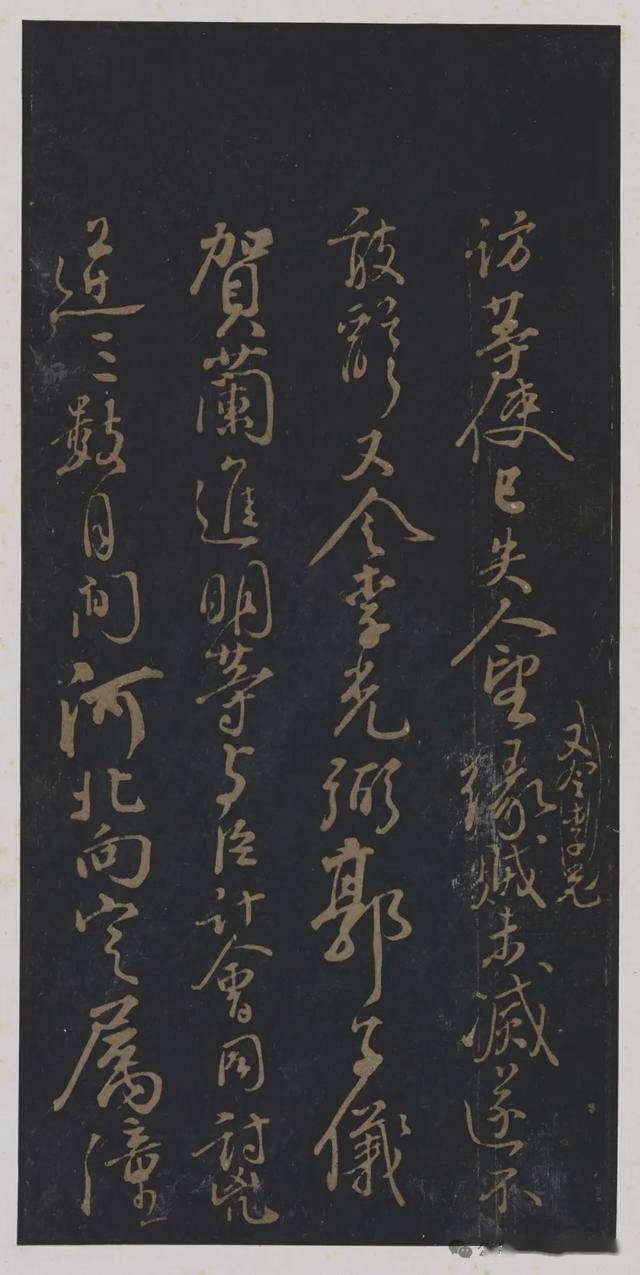 訪等使已失人望緣賊未滅遂不
又令李光
敢辭又令李光弼郭子儀
賀蘭進明等与臣計會同討兇
逆三數月間河北向定屬潼